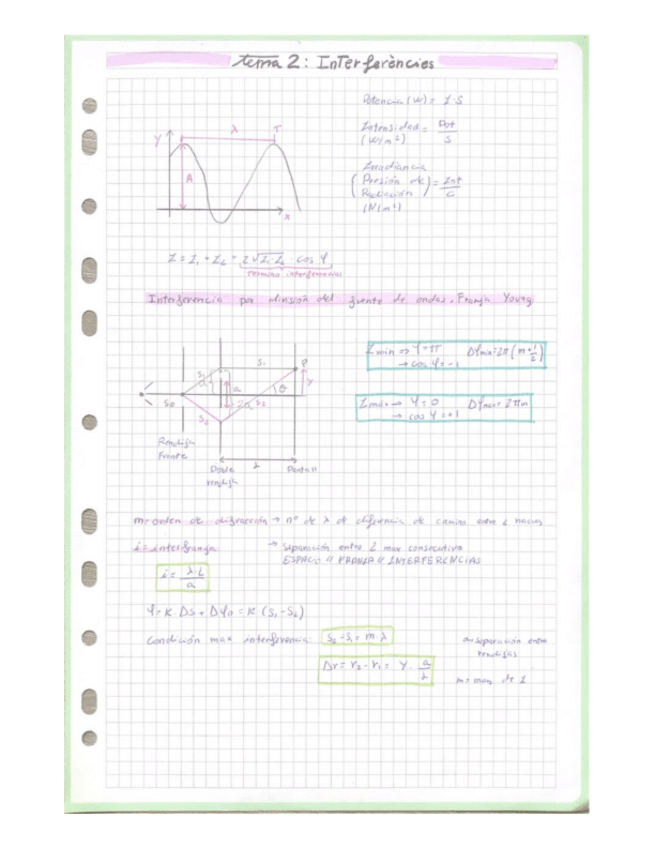 tema 2: Interferències
Potencia (W) = I·S
Intensidad = Pot/S
(W/m²)
Irradiancia
(Presión de Radiación) = Int/C
(N/m²)
Y λ T
A
x
I = I₁ + I₂ + 2√I₁·I₂ cos φ
Término interferencias
Interferencia por división del frente de ondas. Franja Young
I min => φ=π Δφmin=2π(m+1/2)
→ cos φ=-1
I max → φ=0 Δφmax=2πm
→ cos φ=+1
S₁ P
S₀ a θ y
S₂
Rendija
Fuente
Doble
rendija
L
Pantalla
m=orden de difracción → nº de λ de diferencia de camino entre 2 haces
i=interfranja → Separación entre 2 max consecutivo
ESPACIO // FRANJA // INTERFERENCIAS
i = λ·L/a
φ=K ΔS + Δφ₀ = K (S₁-S₂)
Condición max interferencia: S₂-S₁ = m·λ
a=separación entre
rendijas
Δr = r₂-r₁ = y·a/L